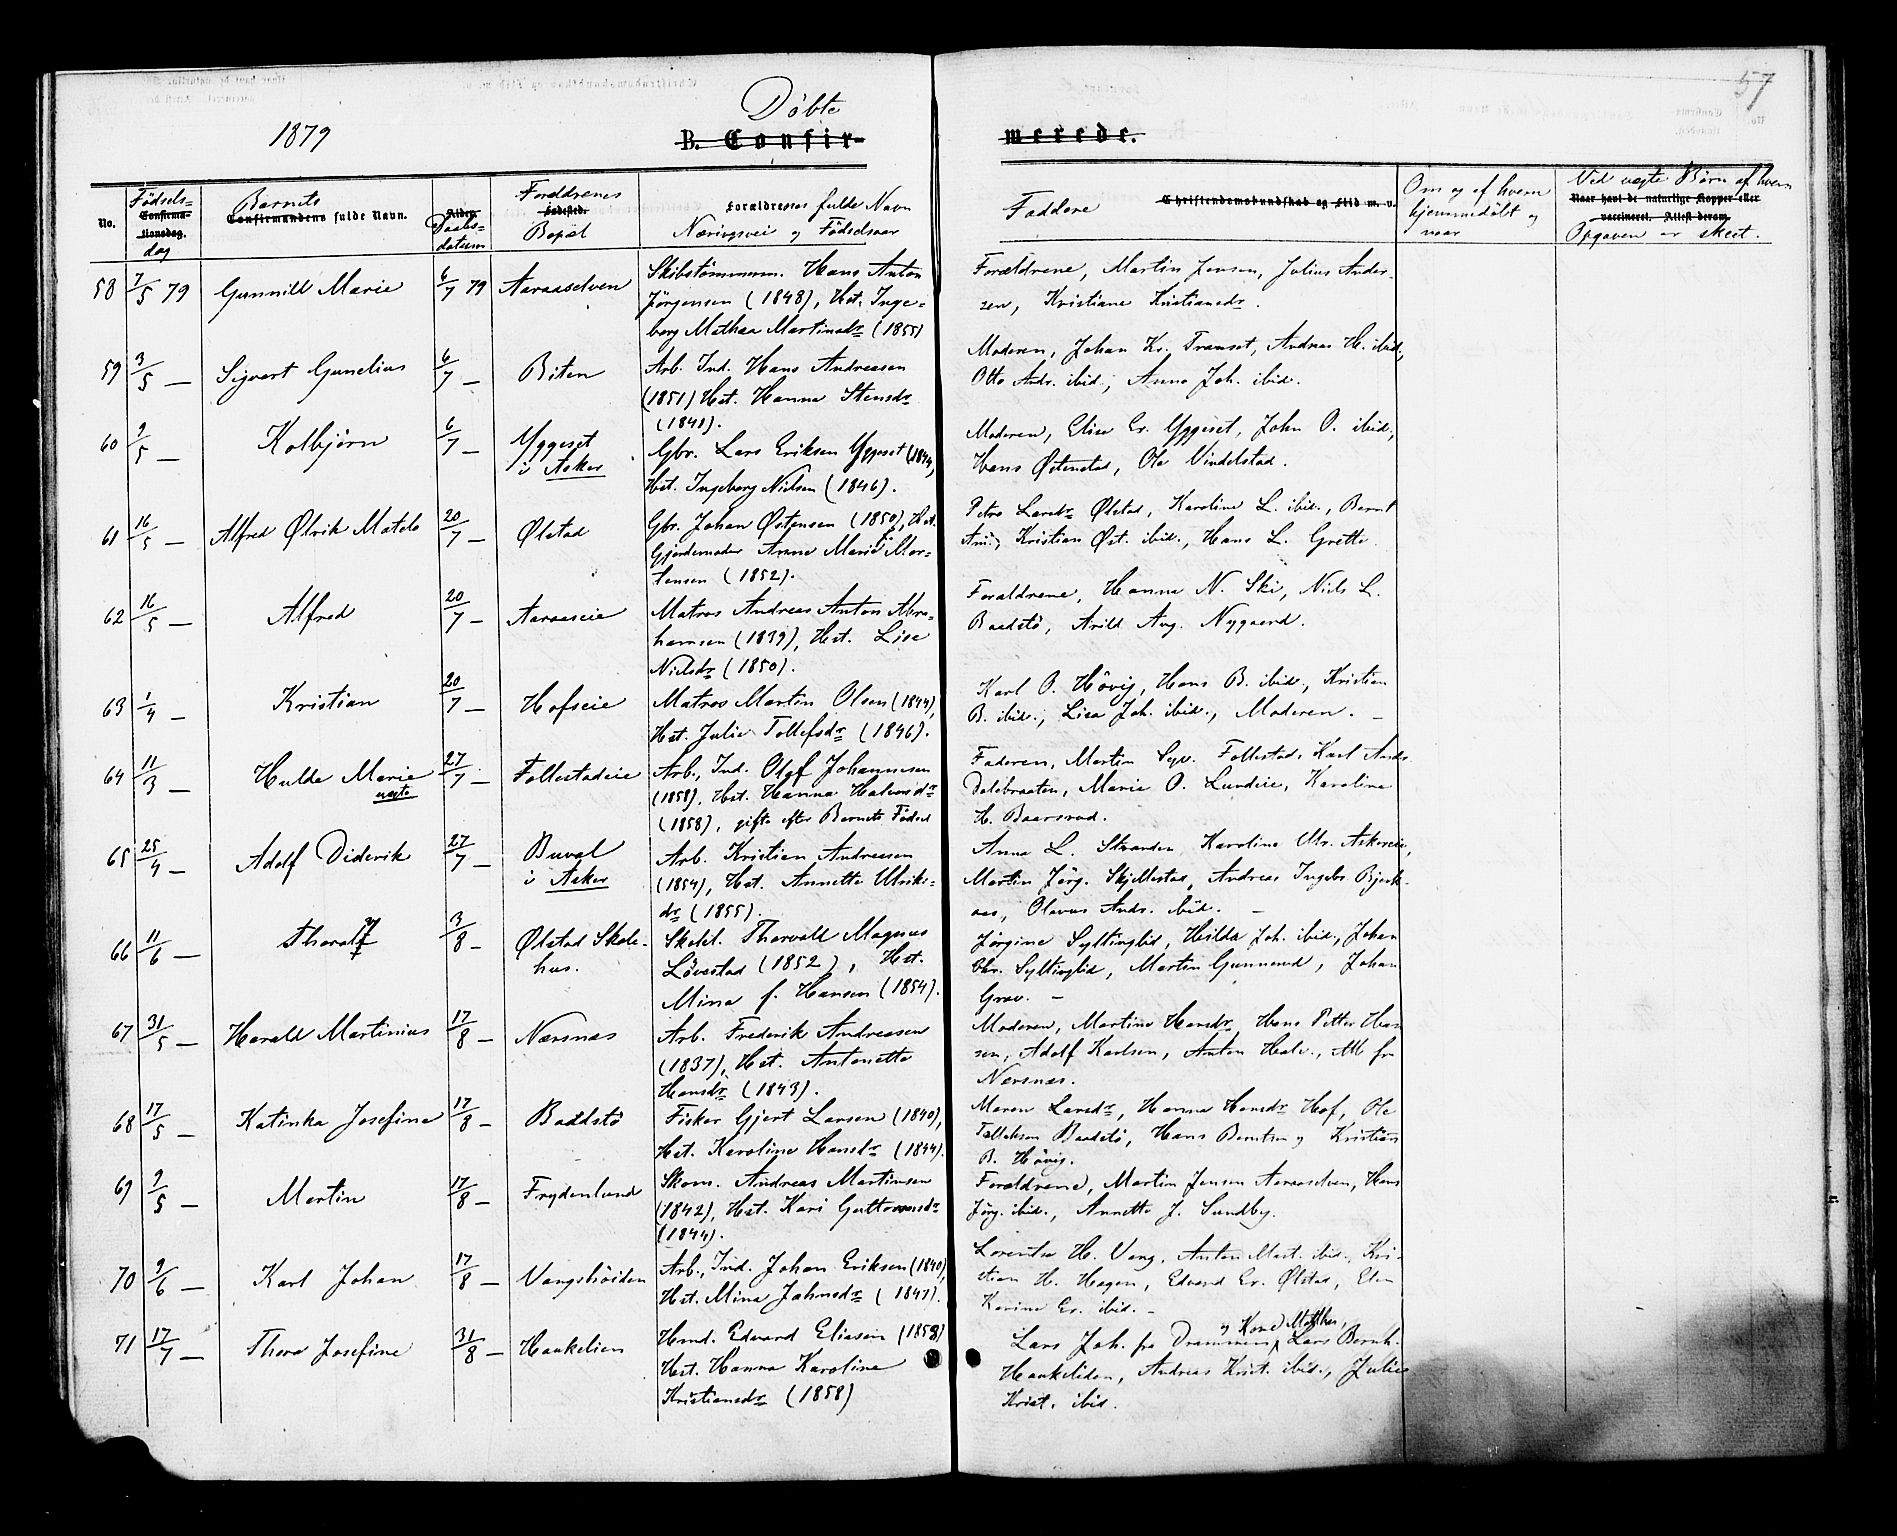 57
Döbte
1879
B. Confir-
merede.
No.
Födsels-
Confirma-
tionsdag.
dag
Barnets
Confirmandens fulde Navn.
Alder.
Daabs-
datum
Forældrenes
Fødested.
Bopæl
Forældrenes fulde Navn
Næringsvei og Födselsaar
Faddere
Christendomskundskab og Flid m. v.
Om og af hvem
hjemmedöbt og
naar
Ved uægte Börn af hvem
Naar havt de naturlige Kopper eller
vaccineret. Attest derom.
Opgaven er skeet.
58 7/5 79 Gunnild Marie 6/7 79 Aaraaselven
Skibstömmerm. Hans Anton
Jörgensen (1848), Hst. Inge-
borg Mathea Martinsdr (1855)
Forældrene, Martin Jensen, Julius Ander-
sen, Kristiane Kristiansdr.
59 3/5 — Sigvart Gunelius 6/7 — Biten
Arb. Ind. Hans Andreasen
(1851) Hst. Hanna Stensdr
(1841).
Moderen, Johan Kr. Transet, Andreas H. ibid.,
Otto Andr. ibid., Anna Joh. ibid.
60 9/5 — Kolbjörn 6/7 — Yggeset
i Asker
Gbr. Lars Eriksen Yggeset (1844,
Hst. Ingeborg Nielsen (1846).
Moderen, Elise Er. Yggeset, John O. ibid.,
Hans Østenstad, Ole Vindelstad.
61 16/5 — Alfred Ølrik Matelo 20/7 — Ølstad
Gbr. Johan Østensen (1850), Hst.
Gjordemoder Anne Marie Mor-
tensen (1852).
Petra Larsdr Ølstad, Karoline L. ibid., Bernt
Am., Kristian Øst. ibid., Hans L. Grette.
62 16/5 — Alfred 20/7 — Aaraaseie
Matros Andreas Anton Abra-
hamsen (1839), Hst. Lise
Nielsdr (1850).
Forældrene, Hanna N. Ski, Niels L.
Baadstö, Arild Aug. Nygaard.
63 1/4 — Kristian 20/7 — Hofseie
Matros Martin Olsen (1844),
Hst. Julie Tollefsdr (1846).
Karl O. Hövig, Hans B. ibid., Kristian
B. ibid., Lisa Joh. ibid., Moderen. —
64 11/3 — Hulda Marie 27/7 — Follestadeie
uægte
Arb., Ind. Olaf Johannesen
(1858), Hst. Hanna Halvorsdr
(1858), gifte efter Barnets Födsel
Faderen, Martin Syv. Follestad, Karl Andr.
Dalsbraaten, Marie O. Lundeie, Karoline
H. Baarsrud.
65 25/4 — Adolf Diderik 27/7 — Buval
i Asker
Arb. Kristian Andreasen
(1854), Hst. Annette Ulriks-
dr (1855).
Anna L. Stranden, Karoline Mr. Askereie,
Martin Jörg. Skjellestad, Andreas Ingebr. Bjerk-
aas, Olavus Andr. ibid. —
66 11/6 — Thoralf 3/8 — Ølstad Skole-
hus.
Skolel. Thorvald Magnus
Lövestad (1852), Hst.
Mina f. Hansen (1854).
Jörgine Syltinglid, Hilda Joh. ibid., Johan
Chr. Syltinglid, Martin Gunnerud, Johan
Grav. —
67 31/5 — Harald Martinius 17/8 — Nærsnæs
Arb. Frederik Andreasen
(1837), Hst. Antonette
Hansdr (1843).
Moderen, Martine Hansdr, Hans Petter Han
sen, Adolf Karlsen, Anton Halv., Alle fra
Nærsnæs.
68 17/5 — Katinka Josefine 17/8 — Baadstö
Fisker Gjert Larsen (1840),
Hst. Karoline Hansdr (1844).
Maren Larsdr, Hanna Hansdr Hof, Ole
Tollefsen Baadstö, Hans Berntsen og Kristian
B. Hövig.
69 9/5 — Martin 17/8 — Frydenlund
Skom. Andreas Martinsen
(1842), Hst. Kari Guttormsdr
(1844).
Forældrene, Martin Jensen Aaraaselven, Hans
Jörg. ibid., Annette J. Sundby.
70 9/6 — Karl Johan 17/8 — Vangshöiden
Arb., Ind. Johan Eriksen (1840),
Hst. Mina Johnsdr (1847).
Lorentse H. Vang, Anton Mart. ibid., Kri-
stian H. Hagen, Edvard Er. Ølstad, Elen
Karine Er. ibid. —
71 17/7 — Thora Josefine 31/8 — Haakelien
Hmd. Edvard Eliasen (1858)
Hst. Hanna Karoline
Kristiansdr (1858)
og Kone Mathea,
Lars Joh. fra Drammen, Lars Bernh.
Haakeliden, Andreas Krist. ibid., Julius
Krist. ibid.